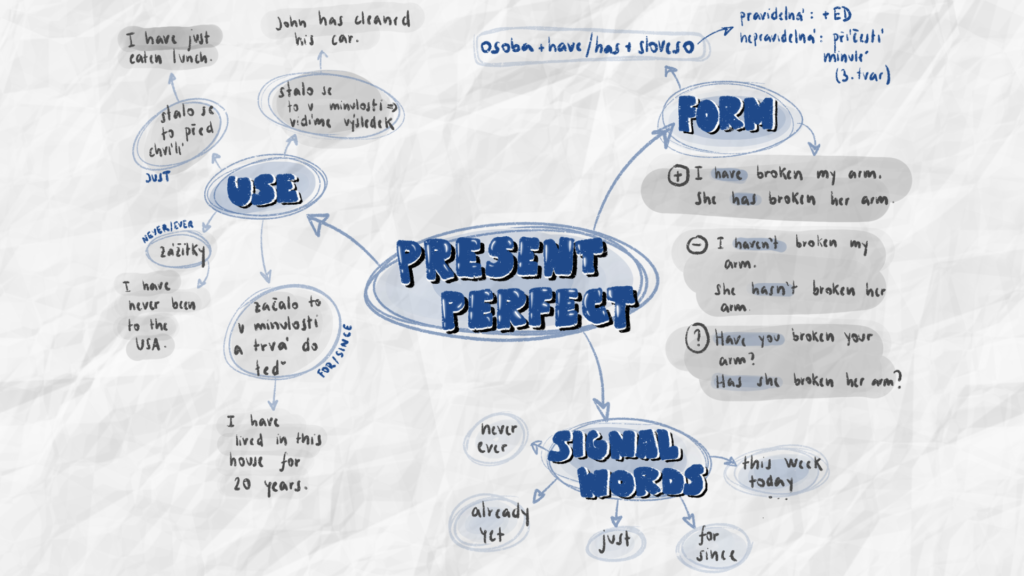 PRESENT
PERFECT
USE
I have just
eaten lunch.
stalo se
to před
chvílí
JUST
John has cleaned
his car.
stalo se
to v minulosti ⇒
vidíme výsledek
NEVER/EVER
zážitky
I have
never been
to the
USA.
začalo to
v minulosti
a trvá do
teď
FOR/SINCE
I have
lived in this
house for
20 years.
FORM
osoba + have/has + sloveso
pravidelná: + ED
nepravidelná: příčestí
minulé
(3. tvar)
+ I have broken my arm.
She has broken her arm.
- I haven't broken my
arm.
She hasn't broken her
arm
? Have you broken your
arm?
Has she broken her arm?
SIGNAL
WORDS
never
ever
already
yet
just
for
since
this week
today
...